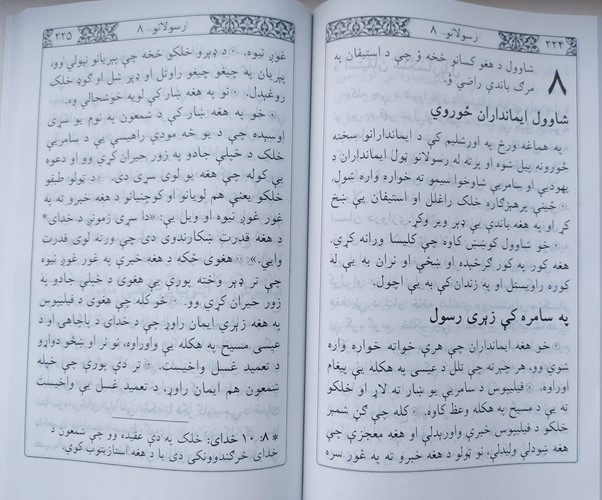 ۲۲۴ رسولانو ۸
۸ شاوول د هغو کسانو څخه ؤ چې د استیفان په
مرګ باندې راضي وَ.
شاوول ایمانداران ځوروي
په هماغه ورځ په اورشلیم کې د ایماندارانو سخته
ځورونه پیل شوه او پرته له رسولانو ټول ایمانداران د
یهودیې او سامریې شاوخوا سیمو ته خواره واره شول.
ځینې پرهېزګاره خلک راغلل او استیفان یې ښخ
کړ او په هغه باندې یې ډېر ویر وکړ.
خو شاوول کوښښ کاوه چې کلیسا ورانه کړي.
هغه کور په کور ګرځېده او ښځې او نران به یې له
کوره راویستل او په زندان کې به یې اچول.
په سامره کې زېری رسول
خو هغه ایمانداران چې هرې خواته خواره واره
شوي وو، هر چېرته چې تلل د عیسی په هکله یې پیغام
اوراوه. فیلیپوس د سامریې یو ښار ته لاړ او خلکو
ته یې د مسیح په هکله وعظ کاوه. کله چې ګڼ شمېر
خلکو د فیلیپوس خبرې واورېدلې او هغه معجزې چې
هغه ښودلې ولیدلې، نو ټولو د هغه خبرو ته په غور سره
رسولانو ۸ ۲۲۵
غوږ نیوه. د ډېرو خلکو څخه چې پېریانو نیولي وو،
پېریان په چیغو چیغو راوتل او ډېر شل او ګوډ خلک
روغېدل. نو په هغه ښار کې لویه خوشحالي وه.
خو په هغه ښار کې د شمعون په نوم یو سړی
اوسېده چې د یو څه مودې راهیسې یې د سامریې
خلک د خپلې جادو په زور حیران کړي وو او دعوه
یې کوله چې هغه یو لوی سړی دی. د ټولو طبقو
خلکو یعنې هم لویانو او کوچنیانو د هغه خبرو ته په
غور غوږ نیوه او ویل یې: «دا سړی زموږ د خدای*
د هغه قدرت ښکارندوی دی چې ورته لوی قدرت
وایي.» هغوی ځکه د هغه خبرې په غور غوږ نیوه
چې تر ډېر وخته پورې یې هغوی د خپلې جادو په
زور حیران کړي وو. خو کله چې هغوی د فیلیپوس
په هغه زېري ایمان راوړ چې د خدای د باچاهۍ او د
عیسی مسیح په هکله یې واوراوه، نو نر او ښځو دواړو
د تعمید غسل واخیست. تر دې پورې چې خپله
شمعون هم ایمان راوړ، د تعمید غسل یې واخیست
* ۸: ۱۰ خدای: خلک په دې عقیده وو چې شمعون د
خدای څرګندوونکی دی یا د هغه استازیتوب کوي.